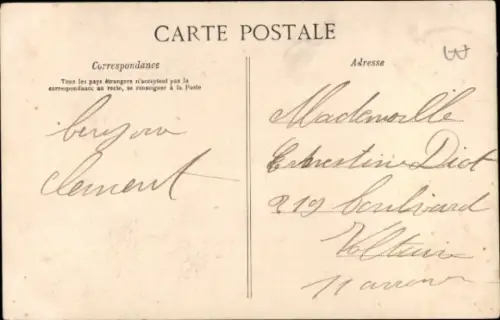 CARTE POSTALE
Correspondance
Tous les pays étrangers n'acceptent pas la
correspondance au recto, se renseigner à la Poste
bonjour
Clement
Adresse
Mademoiselle
Ernestine Diot
219 boulevard
Voltaire